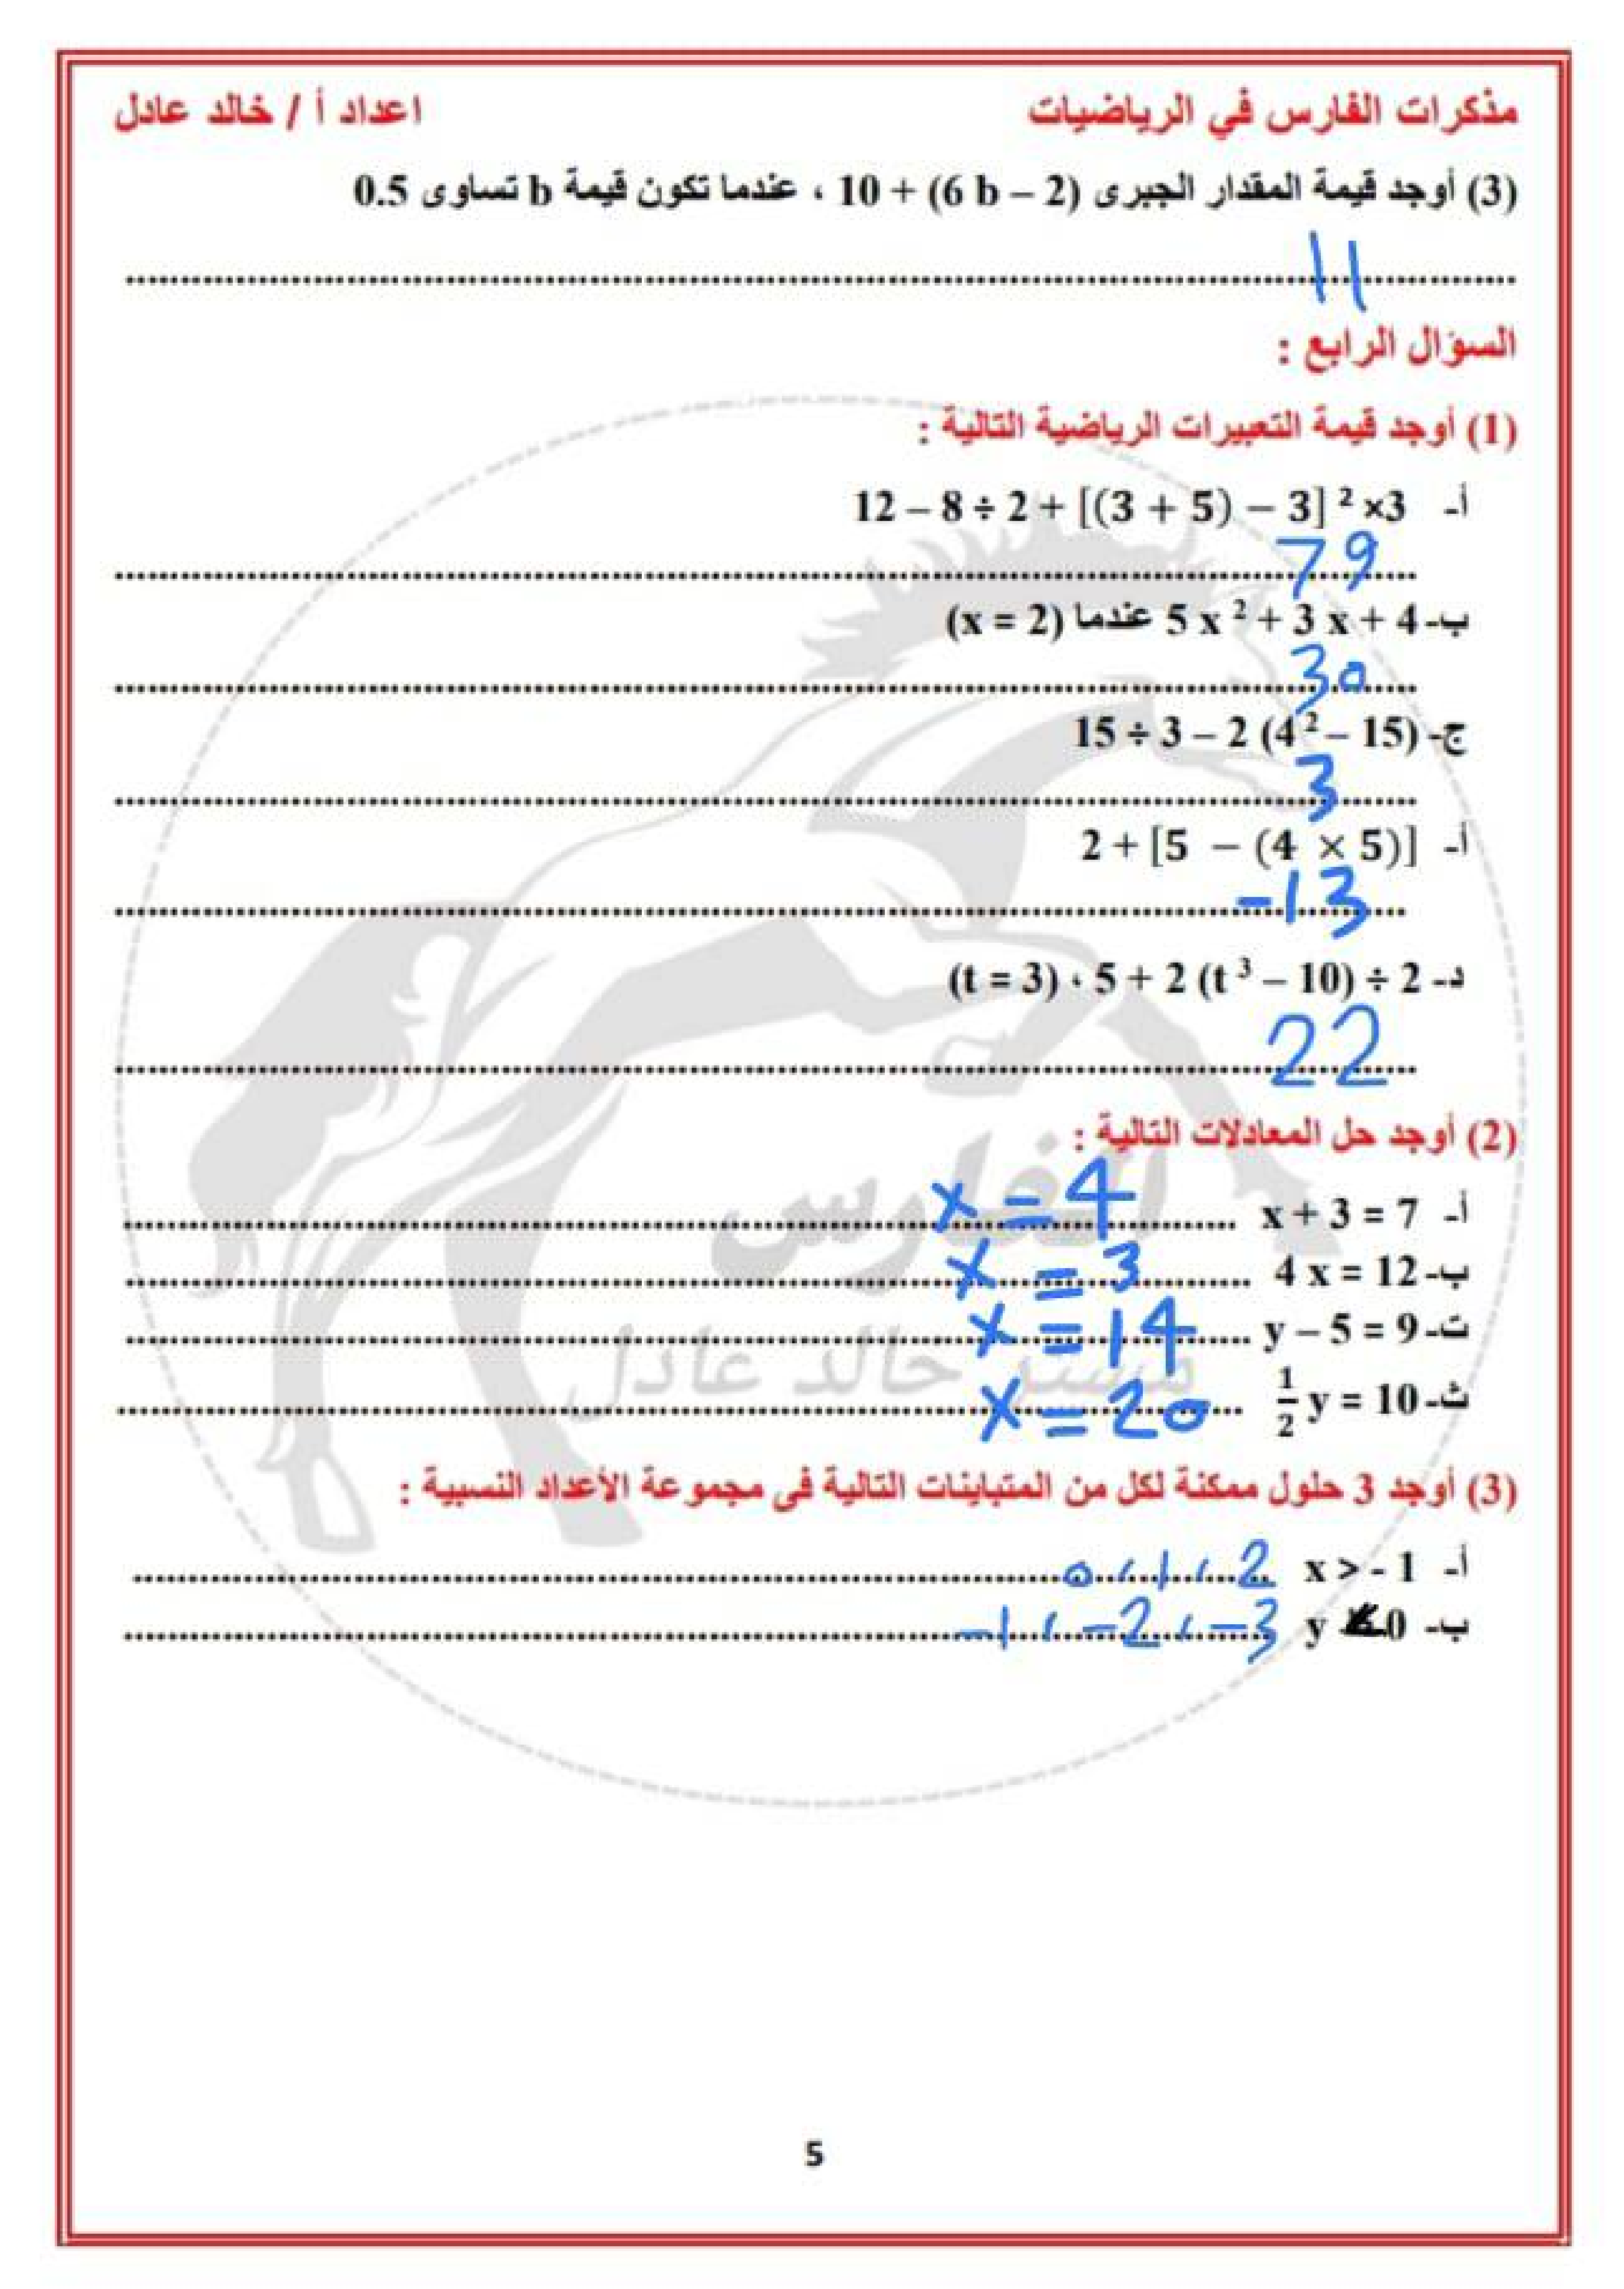 مذكرات الفارس في الرياضيات اعداد أ / خالد عادل
(3) أوجد قيمة المقدار الجبرى 10 + (6 b – 2) ، عندما تكون قيمة b تساوى 0.5
11
السؤال الرابع :
(1) أوجد قيمة التعبيرات الرياضية التالية :
أ- 12 – 8 ÷ 2 + [(3 + 5) – 3] ² ×3
79
ب- 5 x ² + 3 x + 4 عندما (x = 2)
30
ج- 15 ÷ 3 – 2 (4 ² – 15)
3
أ- 2 + [5 – (4 × 5)]
-13
د- 5 + 2 (t ³ – 10) ÷ 2 ، (t = 3)
22
(2) أوجد حل المعادلات التالية :
أ- x + 3 = 7 x = 4
ب- 4 x = 12 x = 3
ت- y – 5 = 9 x = 14
ث- ½ y = 10 x = 20
(3) أوجد 3 حلول ممكنة لكل من المتباينات التالية فى مجموعة الأعداد النسبية :
أ- x > - 1 0 ، 1 ، 2
ب- y < 0 -1 ، -2 ، -3
الفارس
مستر خالد عادل
5